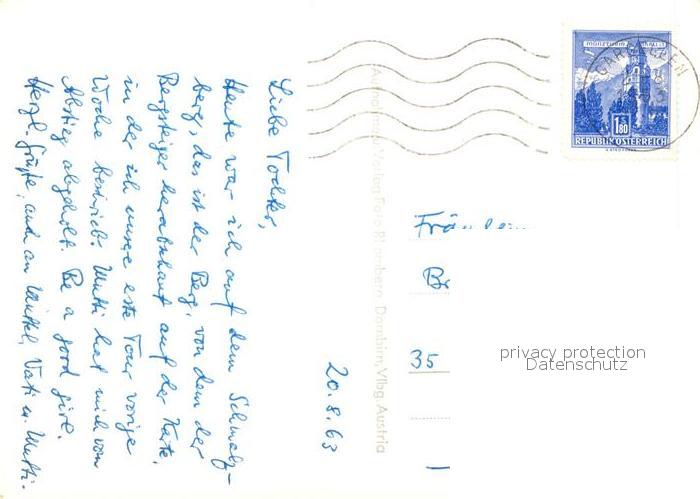 20.8.63
Liebe Tochter,
Heute war ich auf dem Schmalz-
berg, das ist der Berg, von dem der
Bergsteiger herabschaut auf der Karte,
in der ich unsere erste Tour vorige
Woche beschrieb. Mutti hat mich vom
Abstieg abgeholt. Be a good girl.
Herzl. Grüße, auch an Muttel, Vati u. Mutti.
Aufnahme u. Verlag Foto Risch-Lau, Bregenz
Dornbirn, Vlbg. Austria
1.80
REPUBLIK ÖSTERREICH
Fräulein
Br
35
privacy protection
Datenschutz